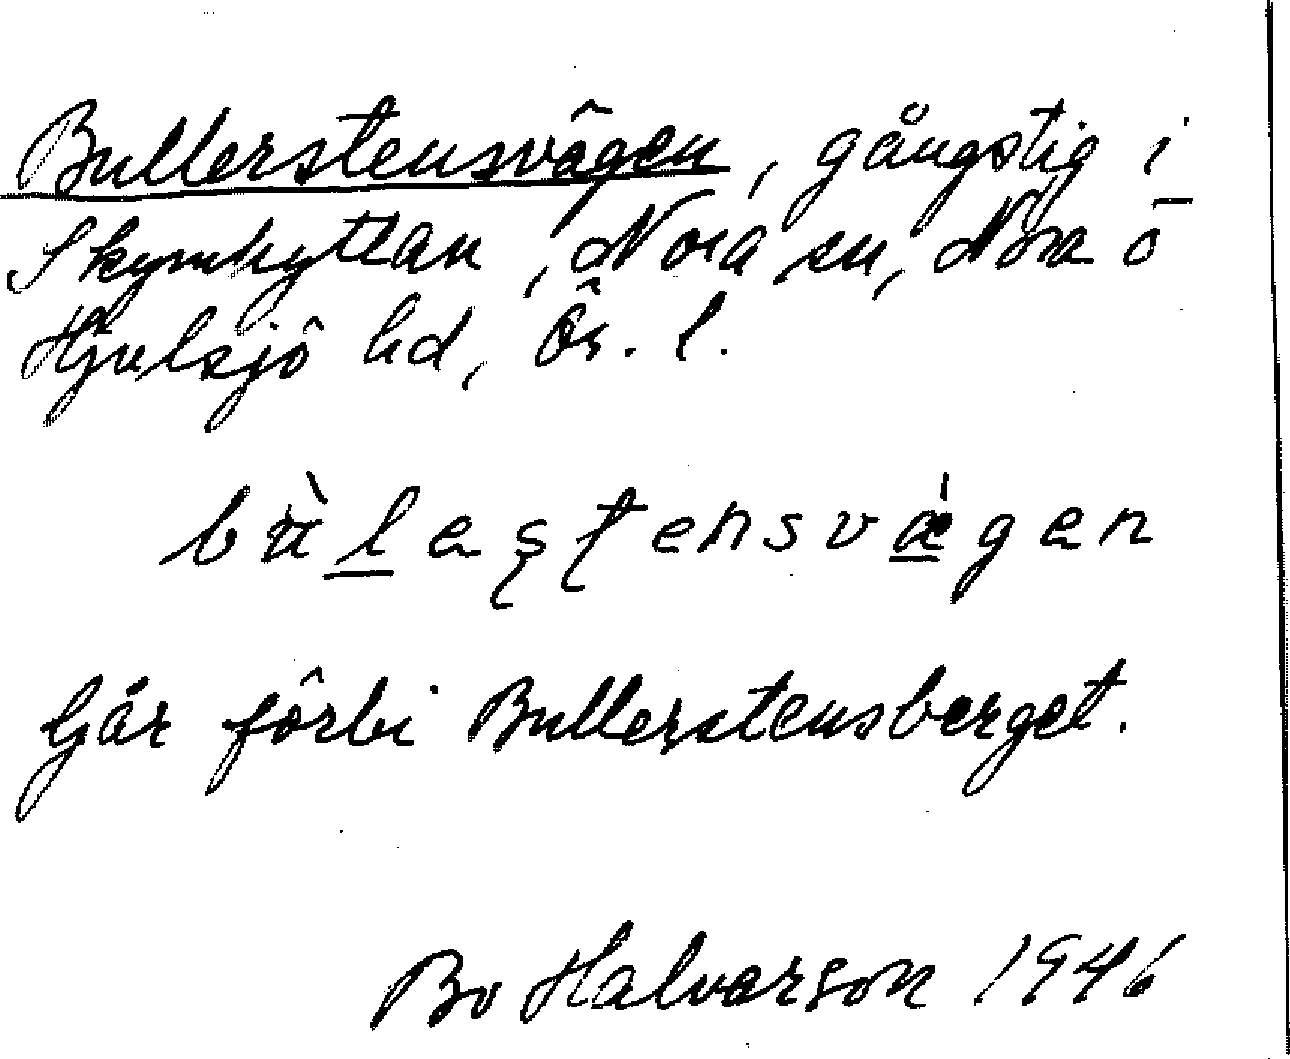 Bullerstensvägen, gångstig i
Skymhyttan, Nora sn, Nora o
Hjulsjö hd, Ör. l.
bùleʂʈensvægen
Går förbi Bullerstensberget.
Bo Halvarson 1946